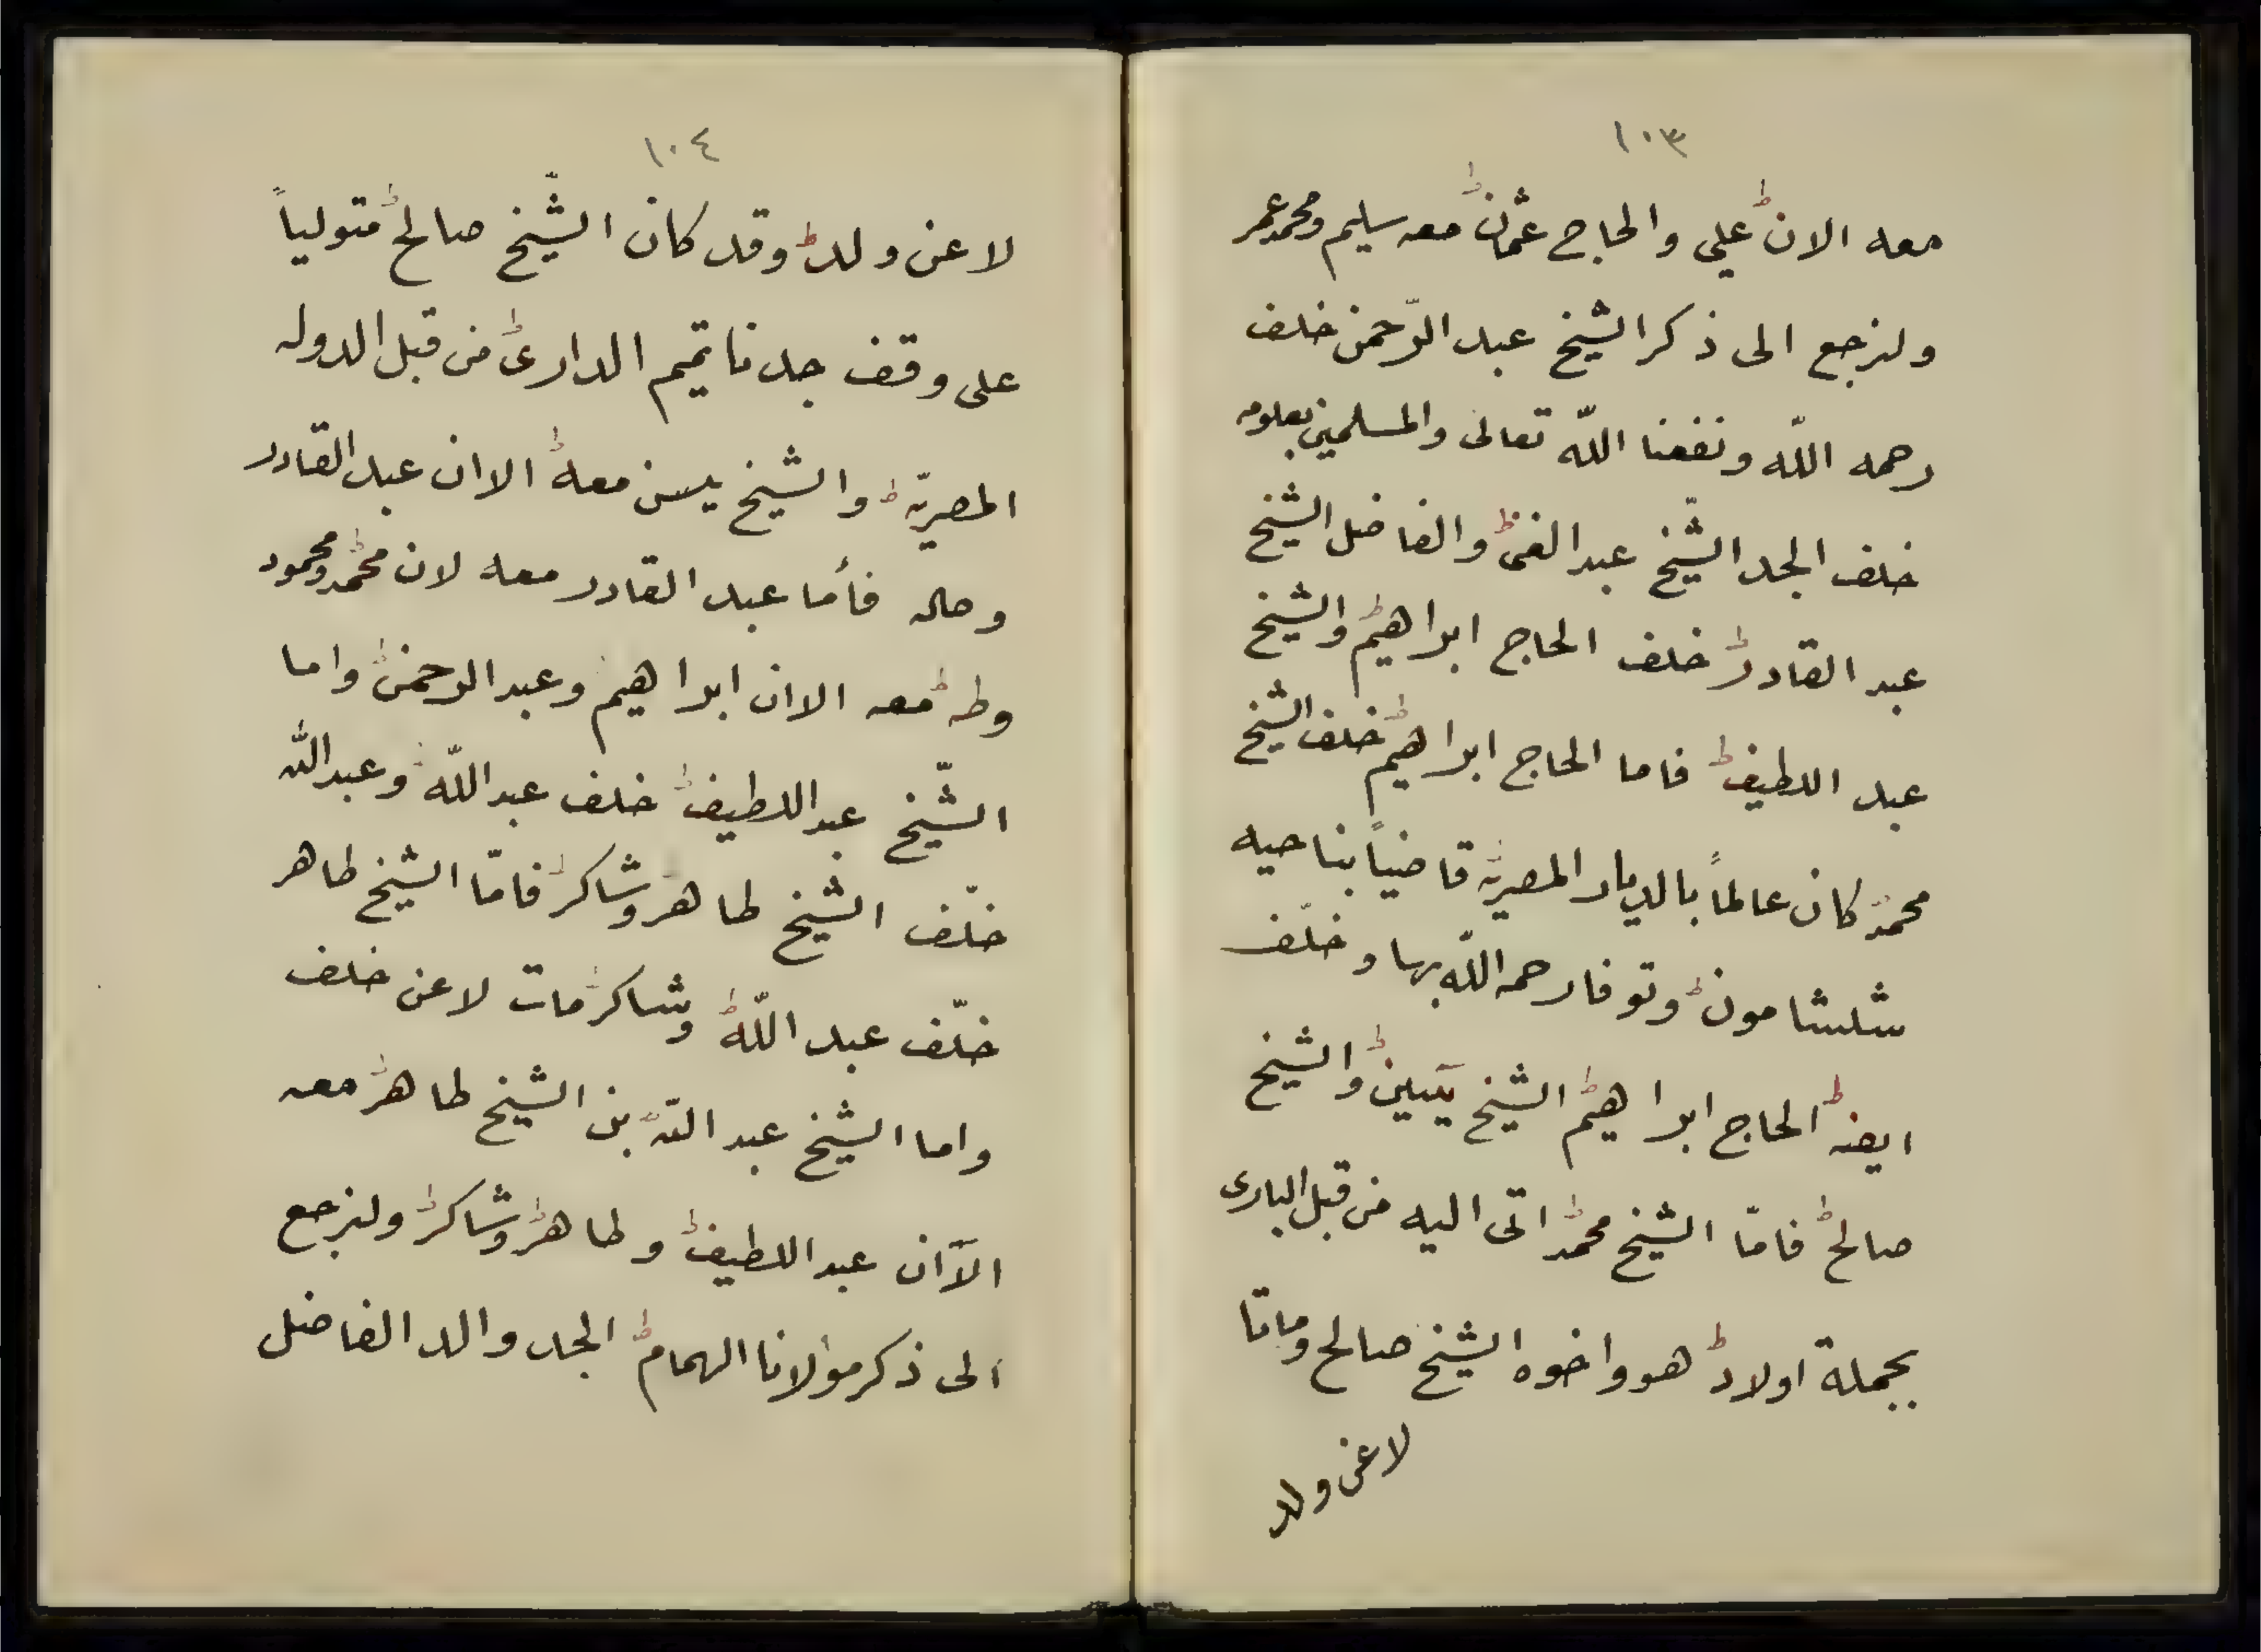 ١٠٣
معه الان علي والحاج عثمان معه سليم ومحمد عمر
ولنرجع الى ذكر الشيخ عبد الرّحمن خلف
رحمه اللّه ونفعنا اللّه تعالى والمسلمين بعلومه
خلف الجد الشّيخ عبد الغنى والفاضل الشيخ
عبد القادر خلف الحاج ابراهيم والشيخ
عبد اللطيف فاما الحاج ابراهيم خلف الشيخ
محمد كان عالماً بالديار المصريه قاضياً بناحيه
شلشامون وتوفا رحمه اللّه بها وخلّف
ايضه الحاج ابراهيم الشيخ يٓسين والشيخ
صالح فامّا الشيخ محمد اتى اليه من قبل البارى
بجملة اولاد هو واخوه الشيخ صالح وماتا
لا عن ولد
١٠٤
لا عن ولد وقد كان الشّيخ صالح متولياً
على وقف جدنا تميم الدارى من قبل الدوله
المصريّه والشيخ يسن معه الاان عبد القادر
وصاله فأما عبد القادر معه لان محمد ومحمود
وطه معه الاان ابراهيم وعبد الرحمن واما
الشّيخ عبد اللطيف خلف عبد اللّه وعبد الله
خلّف الشيخ طاهر وشاكر فامّا الشيخ طاهر
خلّف عبد اللّه وشاكر مات لا عن خلف
واما الشيخ عبد اللّه بن الشيخ طاهر معه
الآان عبد اللطيف وطاهر وشاكر ولنرجع
الى ذكر مولانا الهمام الجد والد الفاضل